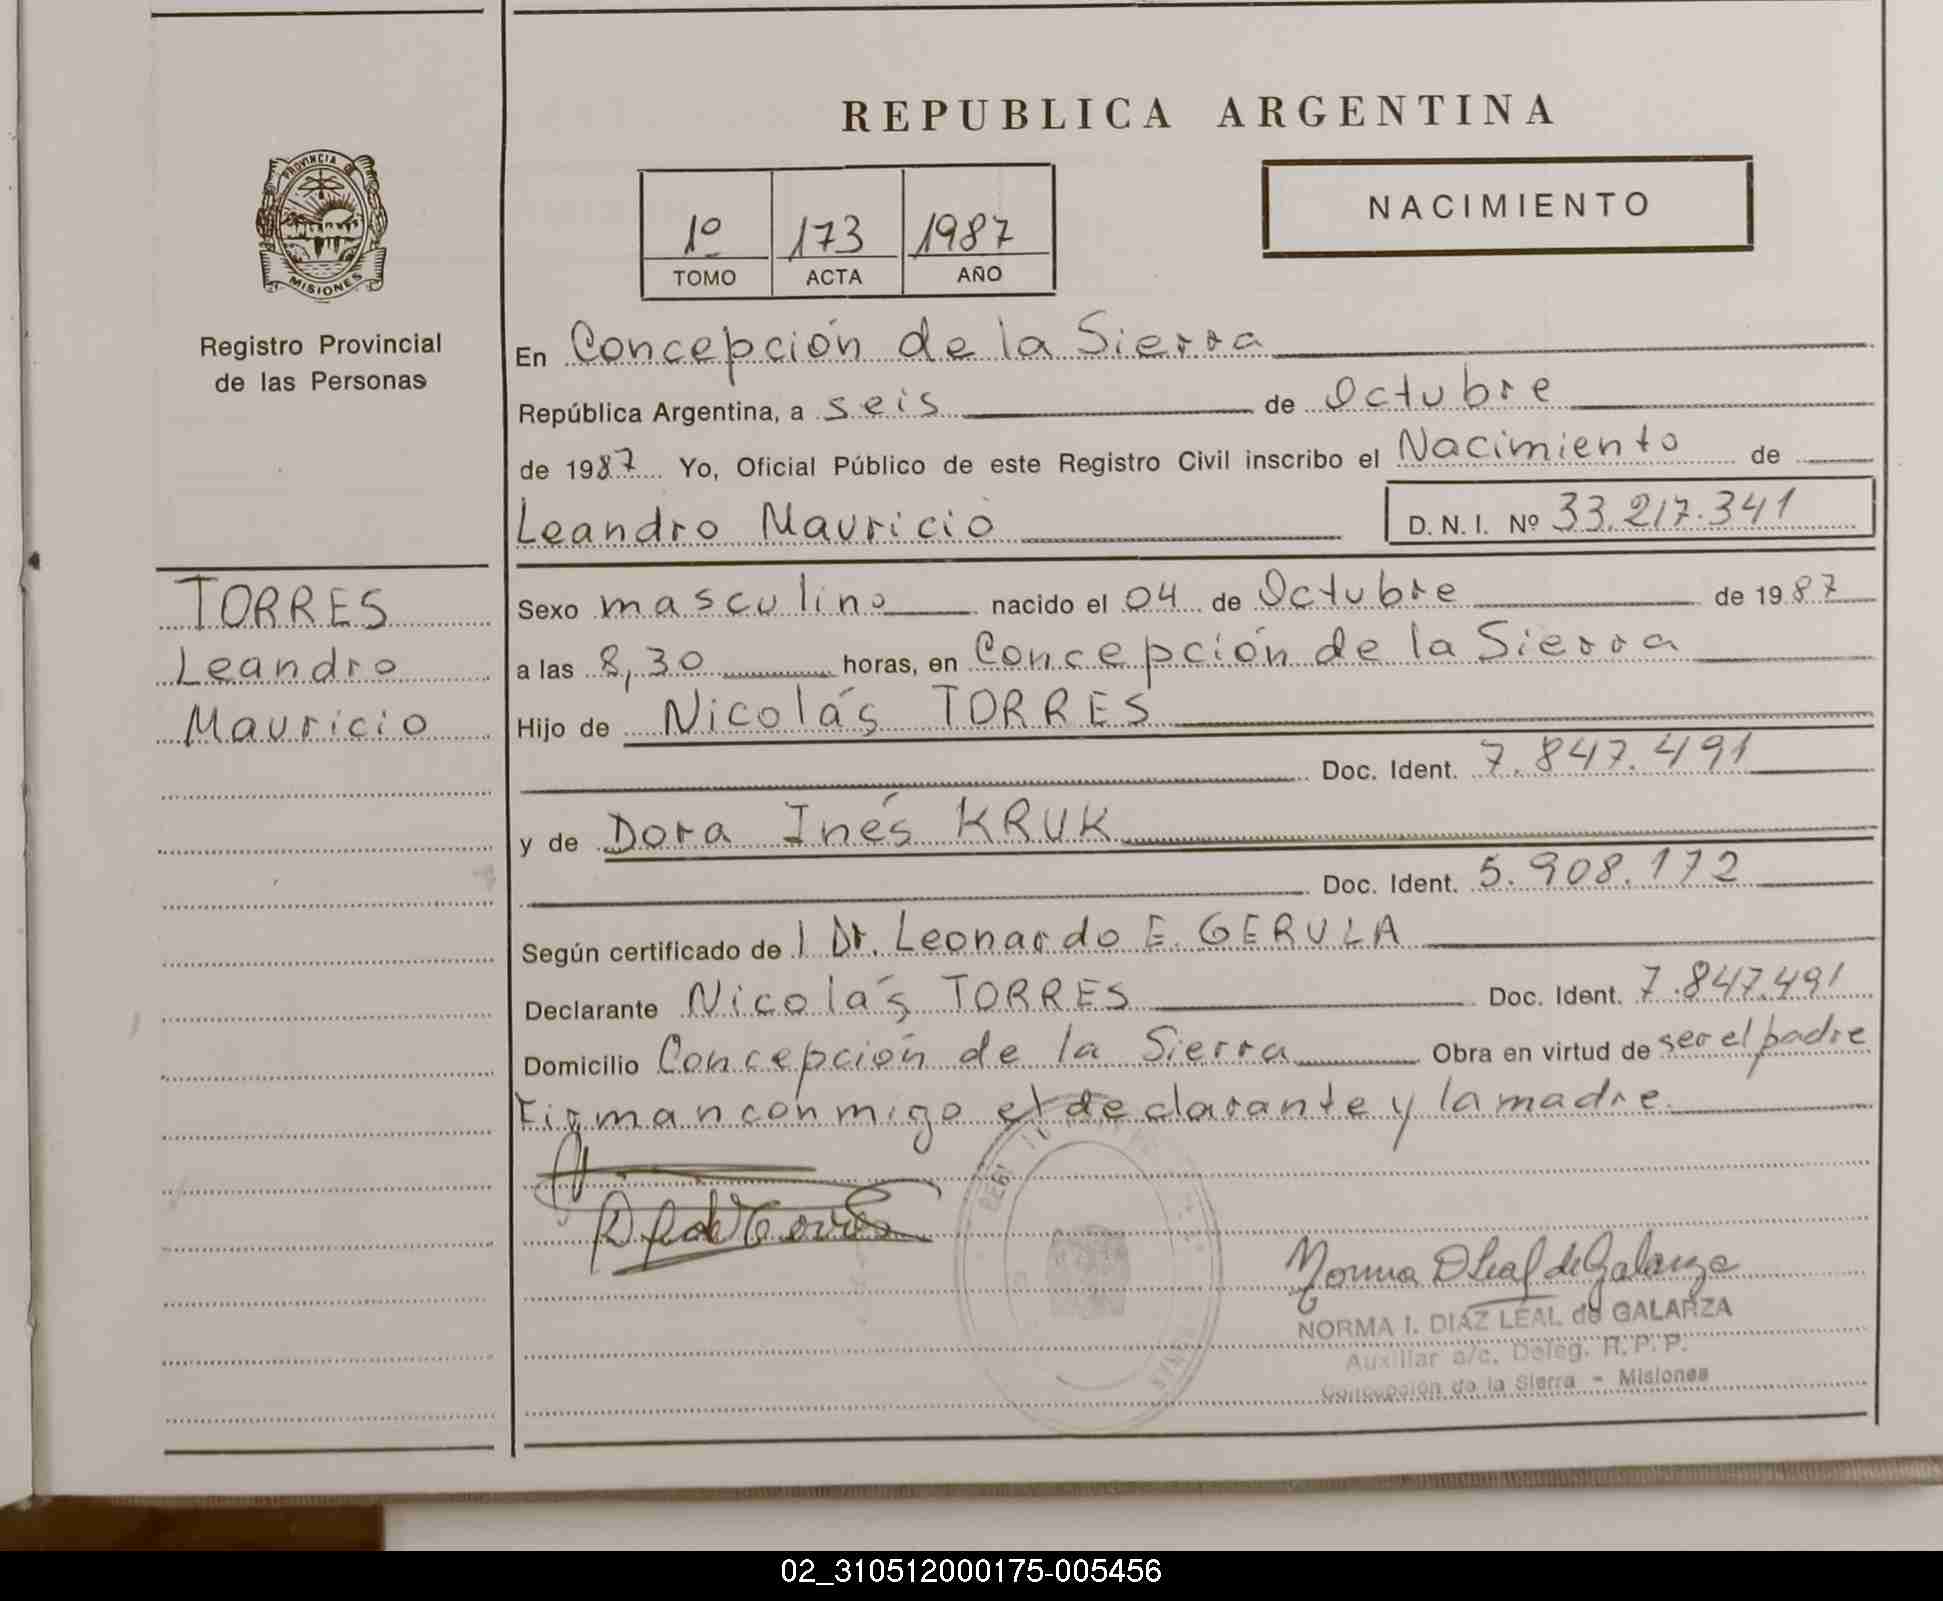 REPUBLICA ARGENTINA
PROVINCIA DE
MISIONES
Registro Provincial
de las Personas
1º 173 1987
TOMO ACTA AÑO
NACIMIENTO
En Concepción de la Sierra
República Argentina, a seis de Octubre
de 1987 Yo, Oficial Público de este Registro Civil inscribo el Nacimiento de
Leandro Mauricio D. N. I. Nº 33.217.341
TORRES
Leandro
Mauricio
Sexo masculino nacido el 04 de Octubre de 1987
a las 8,30 horas, en Concepción de la Sierra
Hijo de Nicolás TORRES
Doc. Ident. 7.847.491
y de Dora Inés KRUK
Doc. Ident. 5.908.172
Según certificado de l Dr. Leonardo E. GERULA
Declarante Nicolás TORRES Doc. Ident. 7.847.491
Domicilio Concepción de la Sierra Obra en virtud de ser el padre
Firman conmigo el declarante y la madre
Norma D Leal de Galarza
NORMA I. DIAZ LEAL de GALARZA
Auxiliar a/c. Deleg. R. P. P.
Concepción de la Sierra - Misiones
02_310512000175-005456